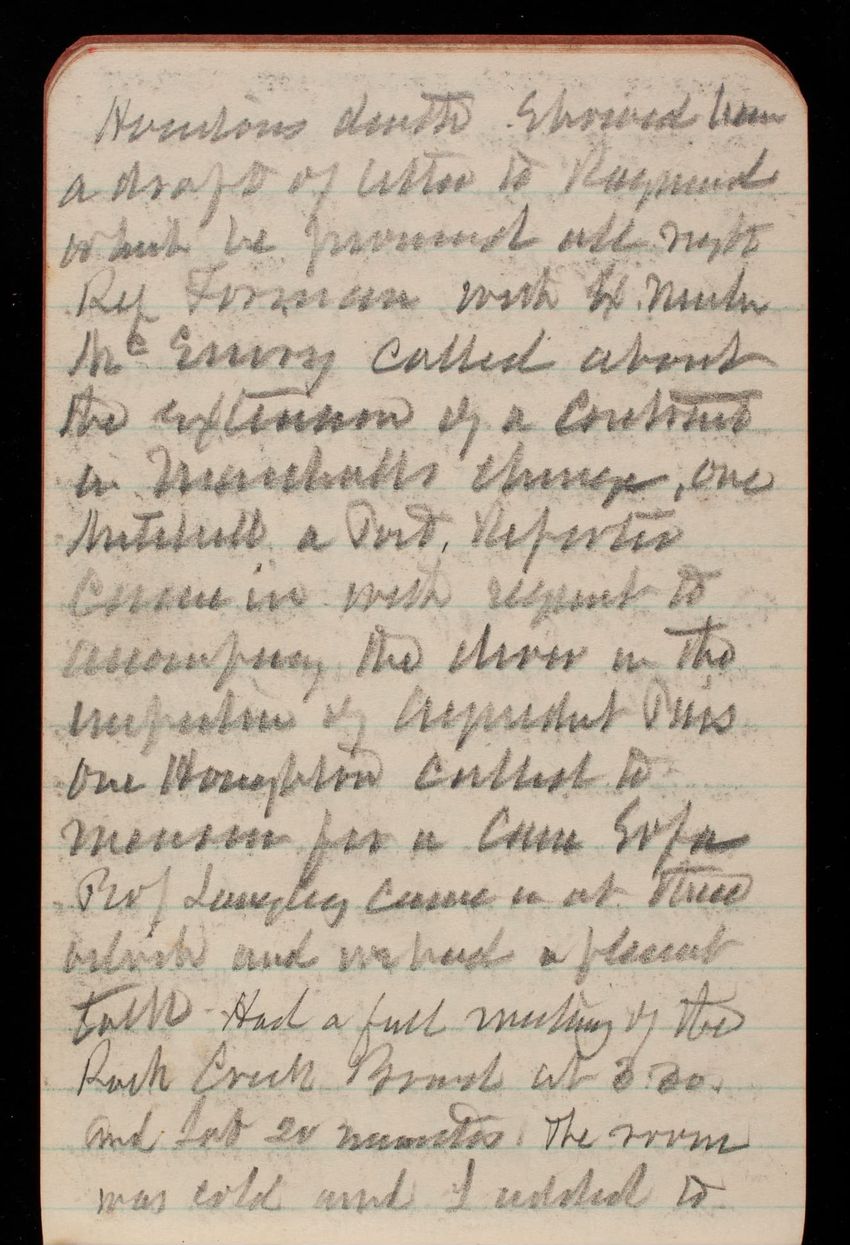 Houstons death Showed him
a draft of letter to Raymond
which he pronounced all right
Rep Forman with Ex.
Mc Emory called about
the extension of a Contract
in Marshalls charge, one
Mitchell a Post. Reporter
Came in with request to
accompany the diver in the
inspection of Aqueduct Piers
one Houghton called to
measure for a Cane Sofa
Prof Langley came in at three
oclock and we had a pleasant
talk - Had a full meeting of the
Rock Creek Board at 3.30.
and Sat 20 minutes. The room
was cold and I added to